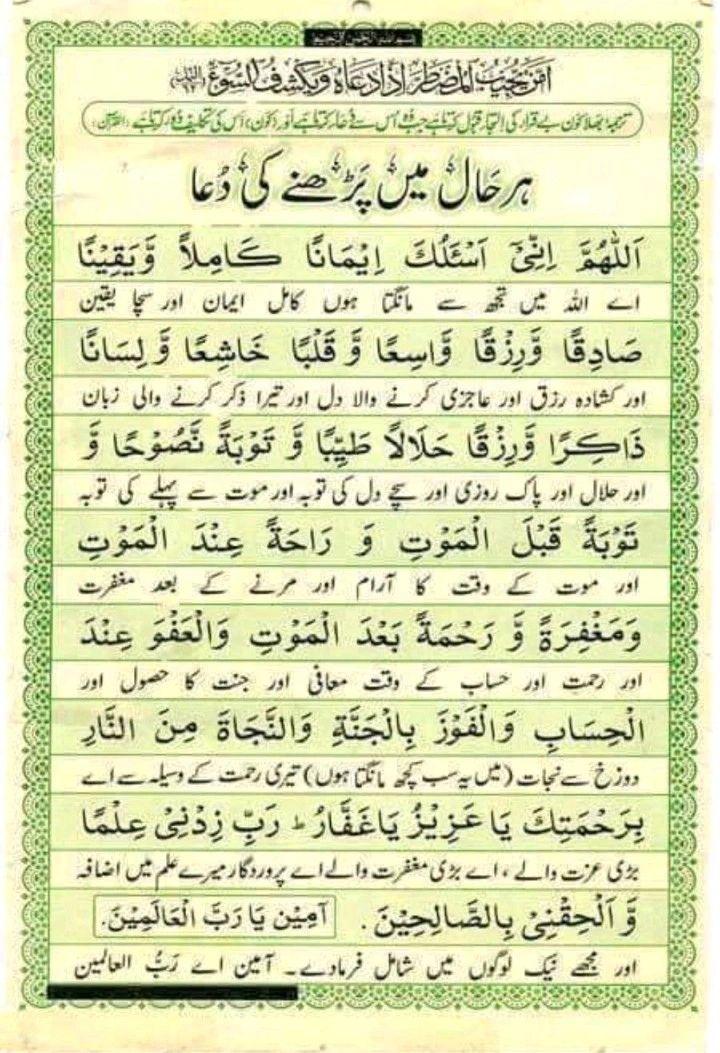 بسم اللہ الرحمن الرحیم
اَمَّنْ یُّجِیْبُ الْمُضْطَرَّ اِذَا دَعَاهُ وَیَکْشِفُ السُّوْٓءَ
ترجمہ: بھلا کون بے قرار کی التجا قبول کرتا ہے جب وہ اُس سے دُعا کرتا ہے اور (کون) اس کی تکلیف دُور کرتا ہے (القرآن)
ہر حَال میں پَڑھنے کی دُعا
اَللّٰهُمَّ اِنِّیْٓ اَسْئَلُكَ اِیْمَانًا کَامِلاً وَّیَقِیْنًا
اے اللہ میں تجھ سے مانگتا ہوں کامل ایمان اور سچا یقین
صَادِقًا وَّرِزْقًا وَّاسِعًا وَّ قَلْبًا خَاشِعًا وَّ لِسَانًا
اور کشادہ رزق اور عاجزی کرنے والا دل اور تیرا ذکر کرنے والی زبان
ذَاکِرًا وَّرِزْقًا حَلَالاً طَیِّبًا وَّ تَوْبَةً نَّصُوْحًا وَّ
اور حلال اور پاک روزی اور سچے دل کی توبہ اور موت سے پہلے کی توبہ
تَوْبَةً قَبْلَ الْمَوْتِ وَ رَاحَةً عِنْدَ الْمَوْتِ
اور موت کے وقت کا آرام اور مرنے کے بعد مغفرت
وَمَغْفِرَةً وَّ رَحْمَةً بَعْدَ الْمَوْتِ وَالْعَفْوَ عِنْدَ
اور رحمت اور حساب کے وقت معافی اور جنت کا حصول اور
الْحِسَابِ وَالْفَوْزَ بِالْجَنَّةِ وَالنَّجَاةَ مِنَ النَّارِ
دوزخ سے نجات (میں یہ سب کچھ مانگتا ہوں) تیری رحمت کے وسیلہ سے اے
بِرَحْمَتِكَ یَا عَزِیْزُ یَاغَفَّارُ ۔ رَبِّ زِدْنِیْ عِلْمًا
بڑی عزت والے ، اے بڑی مغفرت والے اے پروردگار میرے علم میں اضافہ
وَّ اَلْحِقْنِیْ بِالصَّالِحِیْنَ . آمِیْن یَا رَبَّ الْعَالَمِیْنَ.
اور مجھے نیک لوگوں میں شامل فرمادے۔ آمین اے رَبُّ العالمین